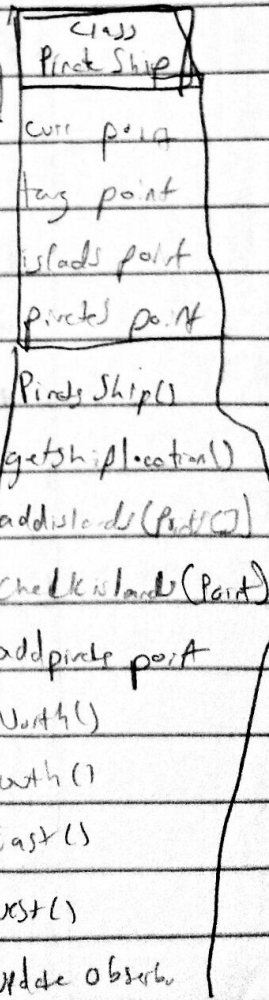 Class
Pirate Ship
curr point
targ point
islads point
pirates point
Pirate Ship()
getshiplocation()
addislands(Point[])
Checkislands(Point)
addpirate point
North()
outh()
East()
est()
update observ